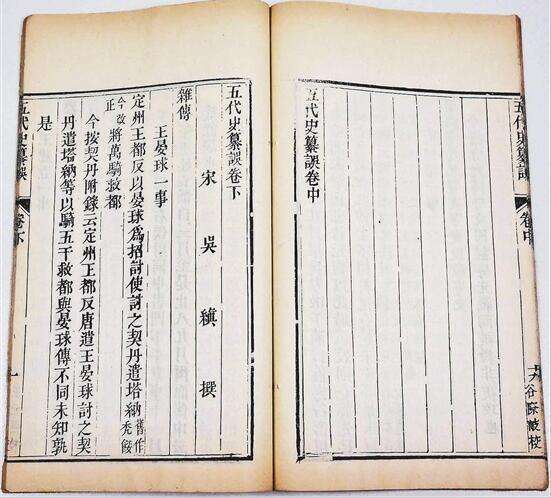 五代史纂誤 卷中
校
五代史纂誤卷中
五代史纂誤卷下
宋 吳 縝 撰
雜傳
王晏球一事
定州王都反以晏球爲招討使討之契丹遣塔納舊作禿餒
今改正將萬騎救都
今按契丹附錄云定州王都反唐遣王晏球討之契
丹遣塔納等以騎五千救都與晏球傳不同未知孰
是
五代史纂誤 卷下 一